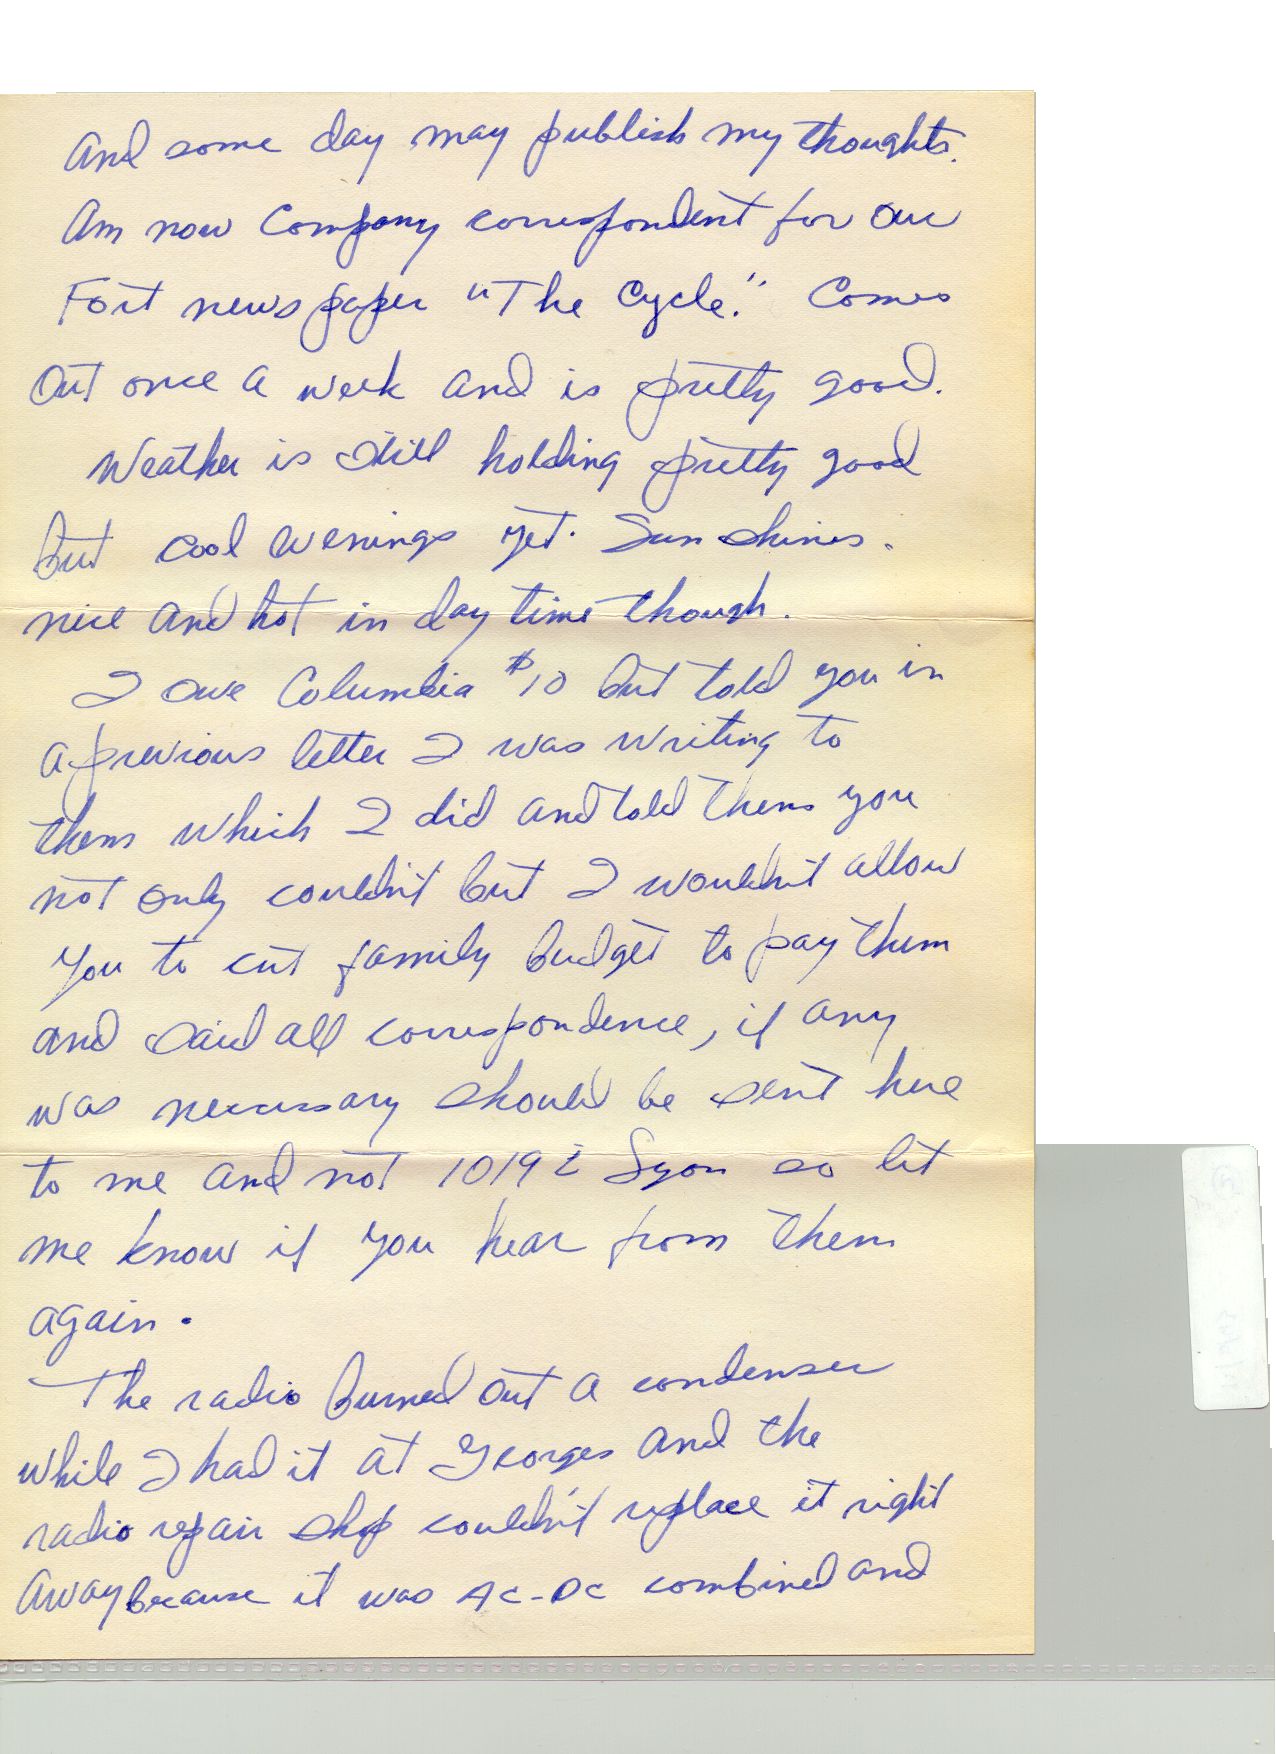 And some day may publish my thoughts.
Am now Company correspondent for our
Fort newspaper "The Cycle." Comes
Out once a week and is pretty good.
Weather is still holding pretty good
but cool evenings yet. Sun shines.
nice and hot in day time though.
I owe Columbia $10 but told you in
a previous letter I was writing to
them which I did and told them you
not only couldn't but I wouldn't allow
you to cut family budget to pay them
and said all correspondence, if any
was necessary should be sent here
to me and not 1019 Lyon so let
me know if you hear from them
again.
The radio burned out a condenser
while I had it at Georges and the
radio repair shop couldn't replace it right
away because it was AC-DC combined and